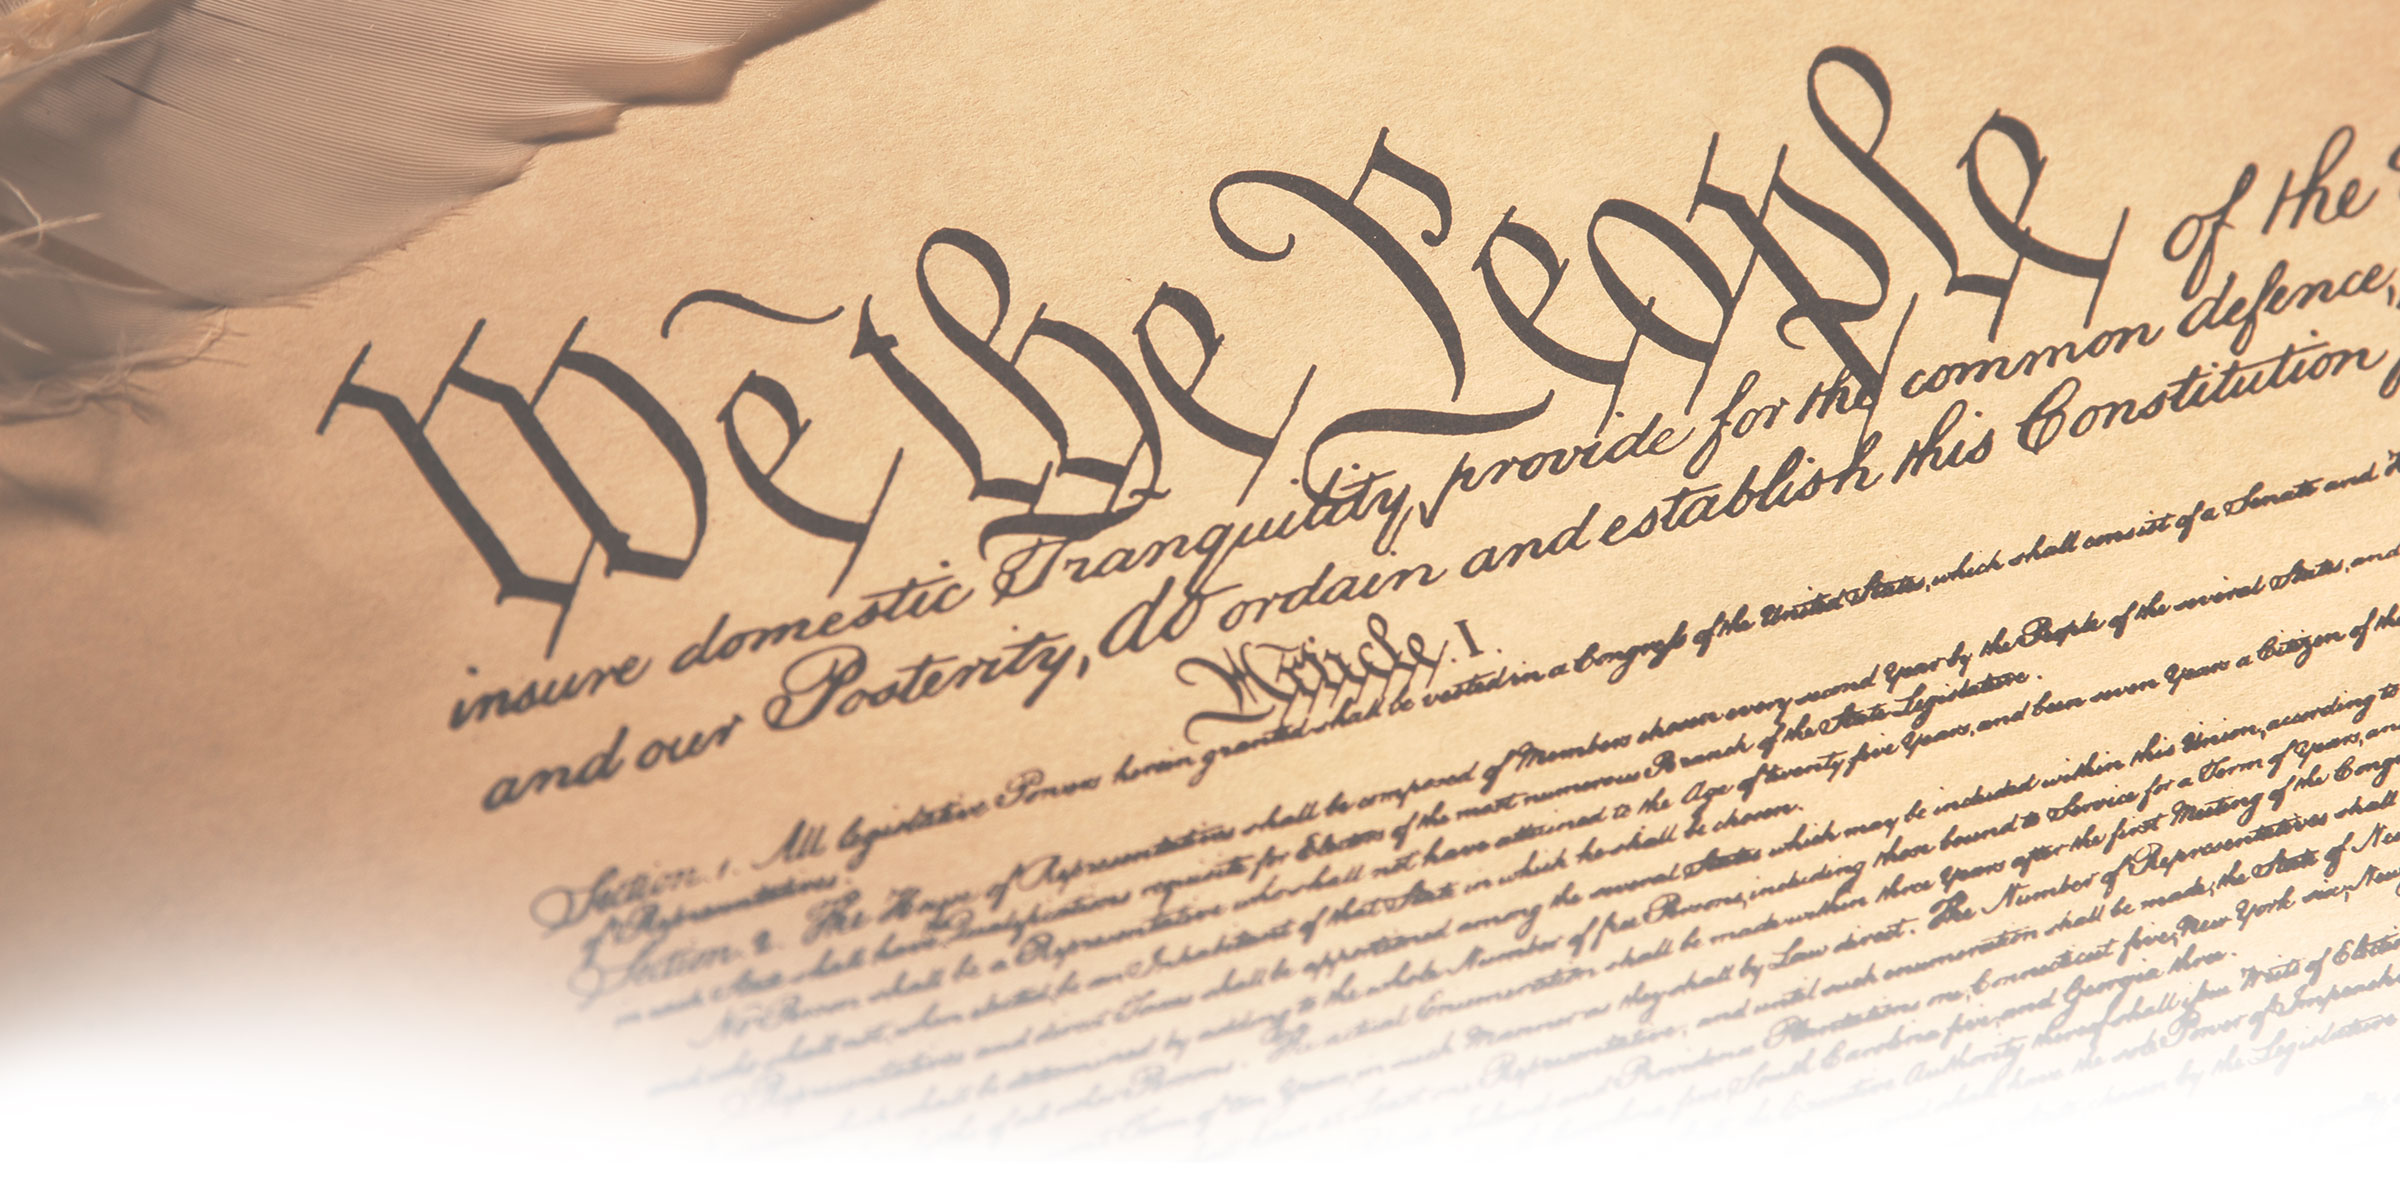 We the People of the
insure domestic Tranquility, provide for the common defence,
and our Posterity, do ordain and establish this Constitution
Article. I.
Section. 1. All legislative Powers herein granted shall be vested in a Congress of the United States, which shall consist of a Senate and
of Representatives.
Section. 2. The House of Representatives shall be composed of Members chosen every second Year by the People of the several States, and
in each State shall have the Qualifications requisite for Electors of the most numerous Branch of the State Legislature.
No Person shall be a Representative who shall not have attained to the Age of twenty five Years, and been seven Years a Citizen of the
and who shall not, when elected, be an Inhabitant of that State in which he shall be chosen.
Representatives and direct Taxes shall be apportioned among the several States which may be included within this Union, according to
which shall be determined by adding to the whole Number of free Persons, including those bound to Service for a Term of Years, and
of all other Persons. The actual Enumeration shall be made within three Years after the first Meeting of the Cong
Term of ten Years, in such Manner as they shall by Law direct. The Number of Representatives shall
at Least one Representative; and until such enumeration shall be made, the State of New
Island and Providence Plantations one, Connecticut five, New York six, New
five, South Carolina five, and Georgia three.
the Executive Authority thereof shall issue Writs of Electio
shall have the sole Power of Impeach
chosen by the Legislature